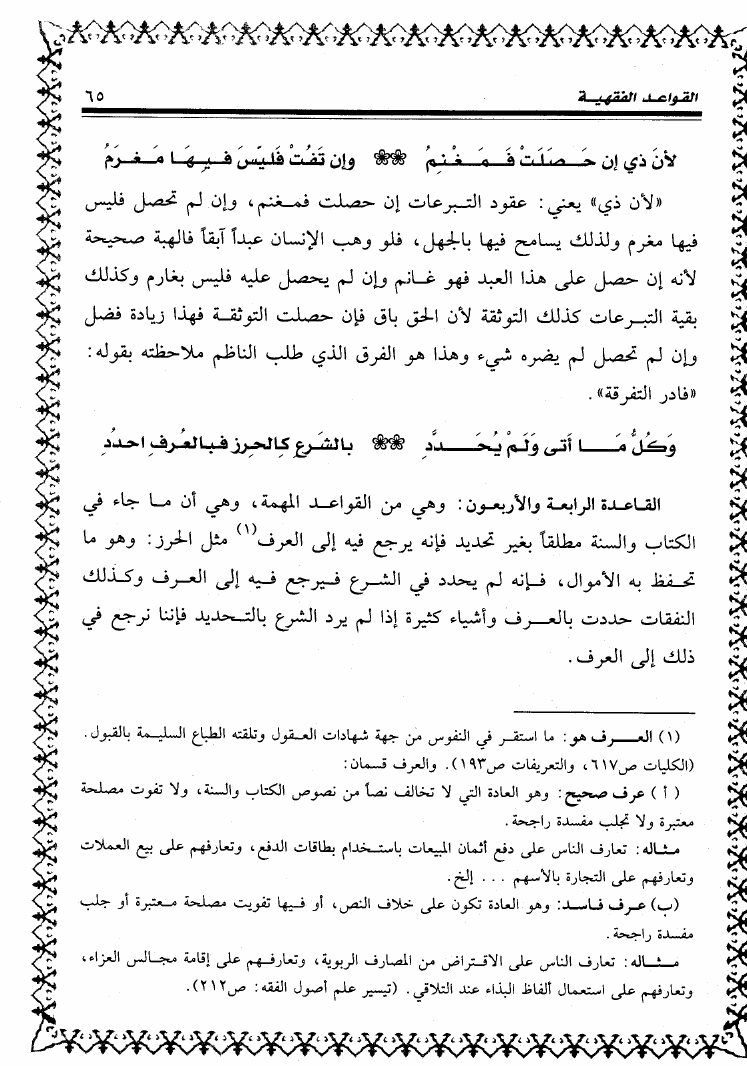 القواعد الفقهية ٦٥
لأنَ ذي إن حَصَلَتْ فَمَغْنِمُ ❀❀ وإن تَفُتْ فَليَسَ فيهَا مَغرَمُ
«لأن ذي» يعني: عقود التبرعات إن حصلت فمغنم، وإن لم تحصل فليس
فيها مغرم ولذلك يسامح فيها بالجهل، فلو وهب الإنسان عبداً آبقاً فالهبة صحيحة
لأنه إن حصل على هذا العبد فهو غانم وإن لم يحصل عليه فليس بغارم وكذلك
بقية التبرعات كذلك التوثقة لأن الحق باق فإن حصلت التوثقة فهذا زيادة فضل
وإن لم تحصل لم يضره شيء وهذا هو الفرق الذي طلب الناظم ملاحظته بقوله:
«فادر التفرقة».
وَكُلُّ مَا أَتى وَلَمْ يُحَدَّدِ ❀❀ بالشَرعِ كالحِرزِ فبالعُرفِ احدُدِ
القاعدة الرابعة والأربعون: وهي من القواعد المهمة، وهي أن ما جاء في
الكتاب والسنة مطلقاً بغير تحديد فإنه يرجع فيه إلى العرف(١) مثل الحرز: وهو ما
تحفظ به الأموال، فإنه لم يحدد في الشرع فيرجع فيه إلى العرف وكذلك
النفقات حددت بالعرف وأشياء كثيرة إذا لم يرد الشرع بالتحديد فإننا نرجع في
ذلك إلى العرف.
(١) العرف هو: ما استقر في النفوس من جهة شهادات العقول وتلقته الطباع السليمة بالقبول.
(الكليات ص٦١٧، والتعريفات ص١٩٣). والعرف قسمان:
(أ) عرف صحيح: وهو العادة التي لا تخالف نصاً من نصوص الكتاب والسنة، ولا تفوت مصلحة
معتبرة ولا تجلب مفسدة راجحة.
مثاله: تعارف الناس على دفع أثمان المبيعات باستخدام بطاقات الدفع، وتعارفهم على بيع العملات
وتعارفهم على التجارة بالأسهم ... إلخ.
(ب) عرف فاسد: وهو العادة تكون على خلاف النص، أو فيها تفويت مصلحة معتبرة أو جلب
مفسدة راجحة.
مثاله: تعارف الناس على الاقتراض من المصارف الربوية، وتعارفهم على إقامة مجالس العزاء،
وتعارفهم على استعمال ألفاظ البذاء عند التلاقي. (تيسير علم أصول الفقه: ص٢١٢).